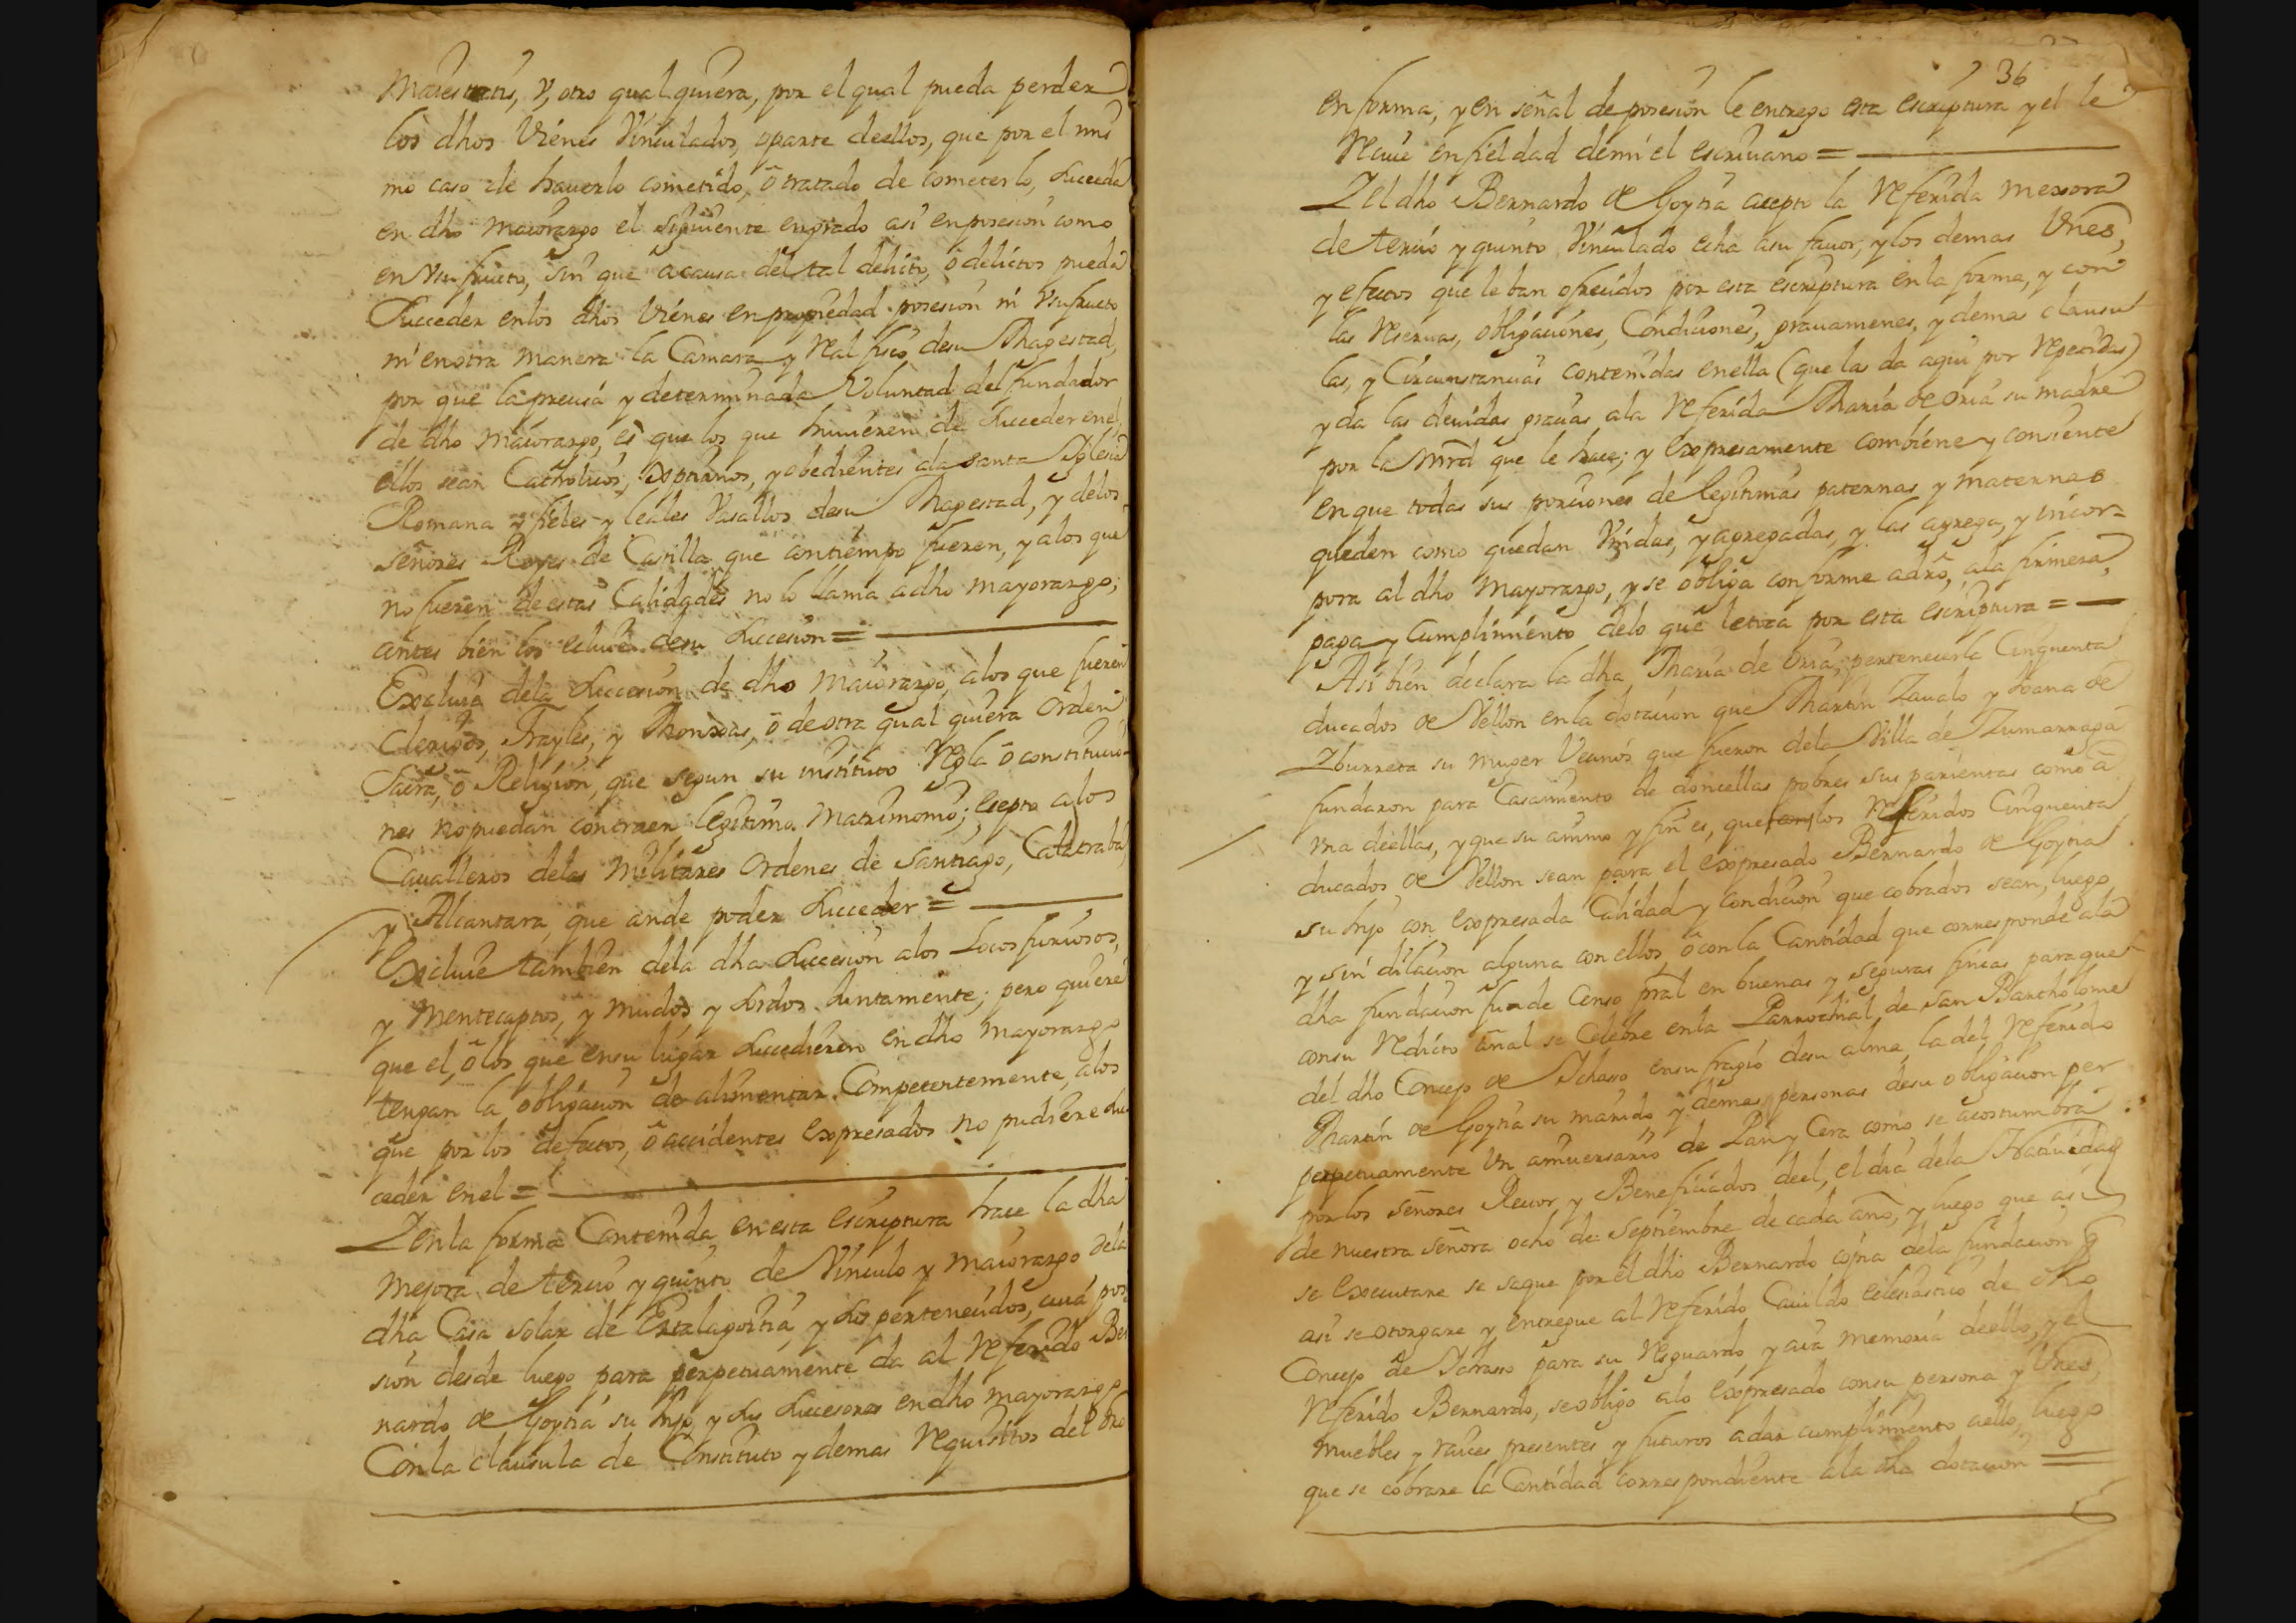 Maiestatis, V, otro qual quiera, por el qual pueda perder
los dhos Vienes Vinculados, oparte deellos, que por el mis
mo caso de hauerlo cometido, ô tratado de cometerlo, succeda
en dho maiorazgo el siguiente engrado asi enposesion como
en Vsufructo, sin que acausa del tal delicto, ô delictos pueda
Succeder enlos dhos Vienes enpropiedad posesion ni Vsufructo
ni enotra manera la Camara y Real fisco desu Magestad,
por que la precisa y determinada Voluntad del fundador
de dho maiorazgo, es que los que huuieren de succeder enel
ellos sean Catholicos, Xptianos, y obedientes ala santa Iglesia
Romana y fieles y leales Vasallos desu Magestad, y delos
señores Reyes de Castilla que contiempo fueren, y alos que
no fueren deestas Calidades no lo llama adho mayorazgo,
antes bien los ecluie desu succesion =
Excluie dela succesion de dho maiorazgo, alos que fueren
Clerigos, Frayles, y Monxas, ô de otra qual quiera orden
Sacra, ô Religion, que segun su instituto Regla ô constitucio
nes nopuedan contraer legitimo Matrimonio; esepto alos
Caualleros delas Militares Ordenes de Santiago, Calatraba,
y Alcantara, que ande poder succeder =
Excluie tambien dela dha succesion alos Locos furiosos,
y Mentecaptos, y mudos y sordos Juntamente; pero quiere
que el, ô los que ensu lugar succedieren en dho mayorazgo
tengan la obligacion de alimentar Competentemente, alos
que por los defectos, ô accidentes expresados no pudiere suc
ceder enel =
Y enla forma Contenida en esta escriptura hace la dha
mejora de tercio y quinto de Vinculo y maiorazgo dela
dha Casa solar de y sus pertenecidos, cuia pose
sion desde luego para perpetuamente da al Referido Ber
nardo de Goytia su hijo, y sus succesores en dho mayorazgo
Con la clausula de Constituto y demas Requisitos del dro
36
en forma, y en señal de posesion le entrego esta escriptura y el le
Reciue enfieldad demi el escriuano =
Y el dho Bernardo de Goytia acepto la Referida mexora
de tercio y quinto Vinculado echa asu fauor, y los demas Vnes,
y efectos que le ban ofrecidos por esta escriptura en la forma, y con
las Reseruas, obligaciones, Condiciones, grauamenes, y demas clausu
las, y Circunstancias contenidas enella (que las da aqui por Repetidas)
y da las deuidas gracias ala Referida Maria de Oria su madre
por la mrd que le hace; y Expresamente combiene y consiente
en que todas sus porciones de legitimas paternas y maternas
queden como quedan Vnidas, y agregadas, y las agrega, y incor=
pora al dho mayorazgo, y se obliga conforme adro, ala firmeza,
paga y Cumplimiento delo que letoca por esta escriptura =
Asi bien declara la dha Maria de Oria, pertenecerla Cinquenta
ducados de Vellon enla dotacion que Martin Zaualo y Joana de
Yburreta su muger Vecinos que fueron dela Villa de Zumarraga
fundaron para Casamiento de doncellas pobres sus parientas como â
vna deellas, y que su animo y fin es, que los Referidos Cinquenta
ducados de Vellon sean para el expresado Bernardo de Goytia
su hijo con expresada Calidad y condicion que cobrados sean, luego
y sin dilacion alguna con ellos, ô con la Cantidad que corresponde ala
dha fundacion funde Censo pral en buenas y seguras fincas para que
consu Redicto añal se Celebre enla Parrochial de San Bartholome
del dho Concejo de Ychasso ensufragio desu alma, la del Referido
Martin de Goytia su marido y demas personas desu obligacion per
perpetuamente Vn aniuersario de Pan y Cera como se acostumbra
por los señores Rector y Beneficiados deel, el dia dela Natiuidad
de nuestra señora ocho de Septiembre de cada año, y luego que asi
se executare se saque por el dho Bernardo copia dela fundacion q
asi se otorgare y entregue al Referido Cauildo eclesiastico de dho
Concejo de Ychasso para su Resguardo, y aia memoria deello, y el
Referido Bernardo, se obligo alo expresado consu persona y Vnes,
muebles y raices presentes y futuros adar cumplimiento aello, luego
que se cobrare la Cantidad correspondiente ala dha dotacion =